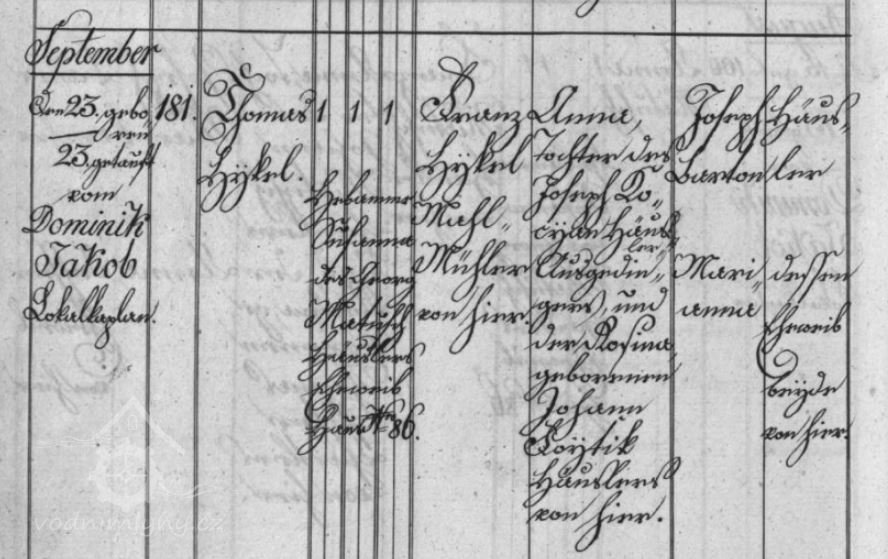 September
Den 23. gebo„
ren
23. getauft
vom
Dominik
Jakob
Lokalkaplan.
181.
Thomas
Hykel.
1 1 1
Hebamme
Susanna
des Georg
Matusch
Häuslers
Eheweib
Haus Nro 86.
Franz
Hykel
Mahl„
Mühler
von hier.
Anna,
Tochter des
Joseph Ko„
cyan Häus„
ler„
Ausgedin„
gers, und
der Rosina
geborenen
Johann
Koytik
Häuslers
von hier.
Joseph
Barton
Mari„
anna
Häus„
ler
dessen
Eheweib
beyde
von hier.
vodnimlyny.cz